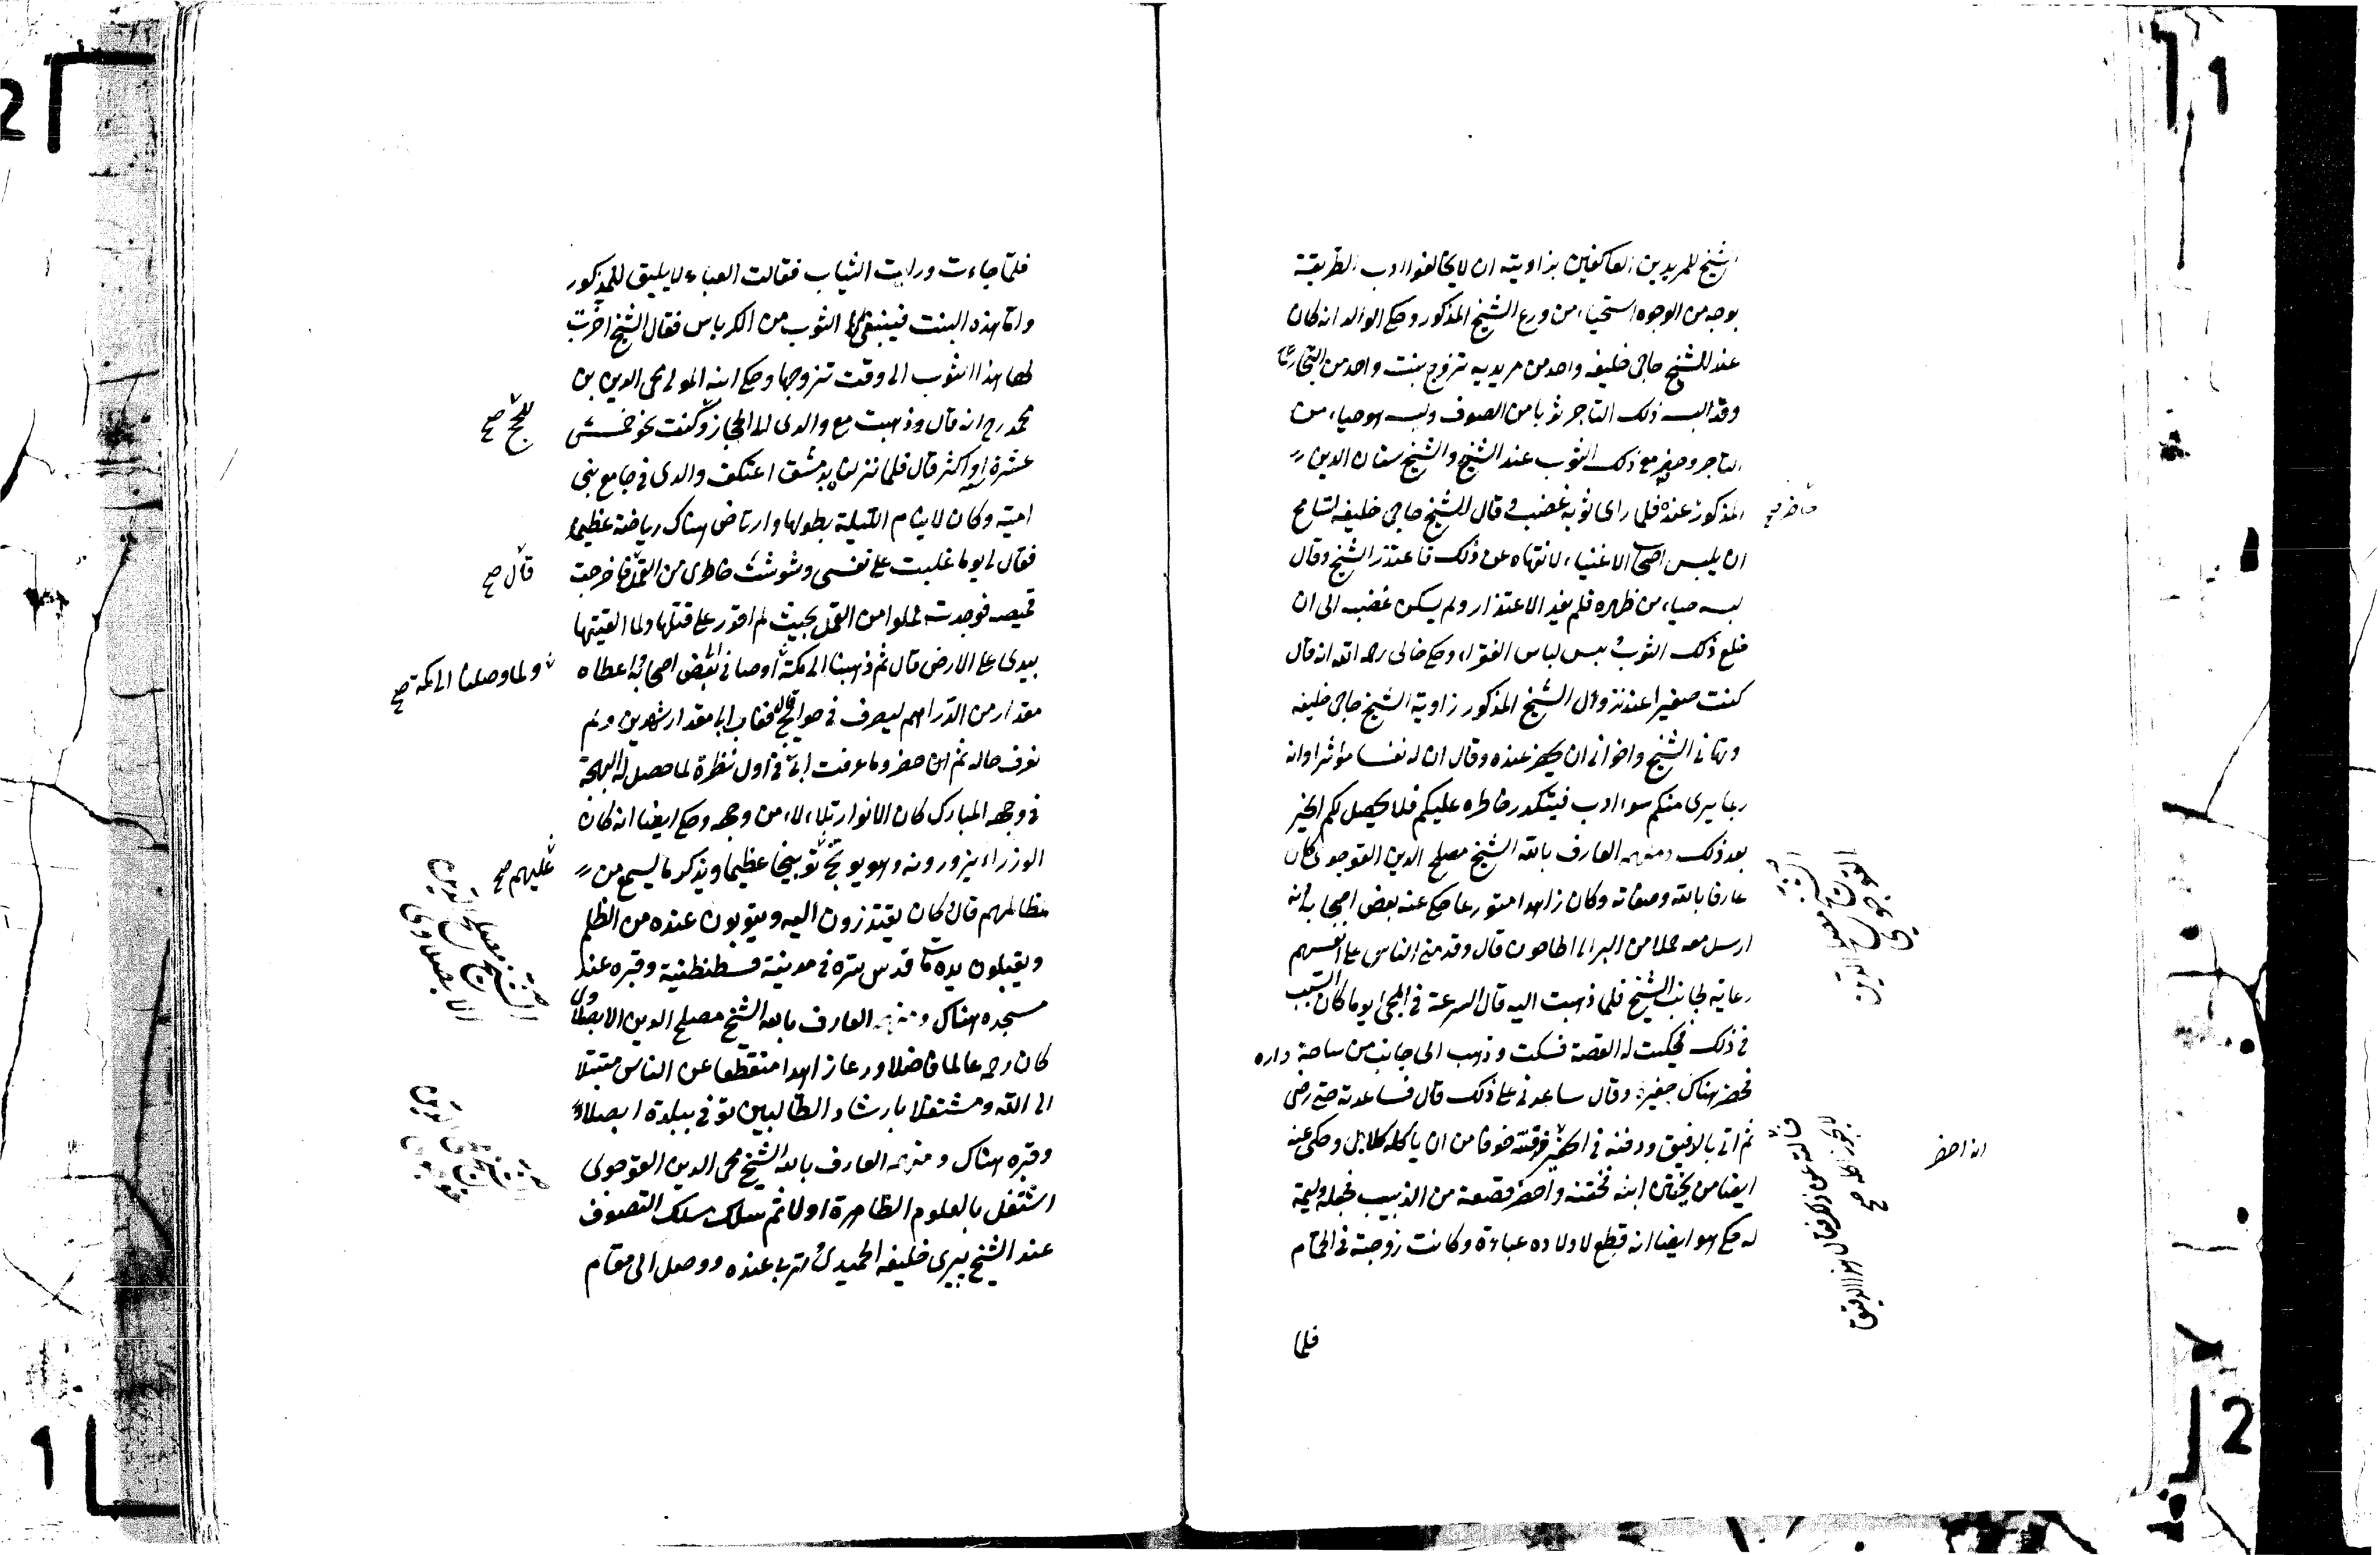 الشيخ للمريدين العاكفين بزاويته ان لا يخالفوا ادب الطريقة
بوجه من الوجوه استحياء من ورع الشيخ المذكور وحكى الوالد انه كان
عند الشيخ حاجى خليفه واحد من مريديه تزوج بنت واحد من التجار
وقد البسه ذلك التاجر ثوبا من الصوف ولبسه هو حياء من
التاجر وحضر مع ذلك الثوب عند الشيخ والشيخ سنان الدين
المذكور عنده فلما راى ثوبه غضب وقال للشيخ حاجى خليفه لتسامح
حاضر صح
ان يلبس احد لباس الاغنياء لا تنهاه عن ذلك فاعتذر الشيخ وقال
لبسه حياء من ظهره فلم يفد الاعتذار ولم يسكن غضبه الى ان
خلع ذلك الثوب ولبس لباس الفقراء وحكى خالى رحمه الله انه قال
كنت صغيرا عند نزول الشيخ المذكور زاوية الشيخ حاجى خليفه
ونهانى الشيخ واخوانى ان يحضر عنده وقال ان له نفسا مؤثرا وانه
ربما يرى منكم سوء ادب فيتكدر خاطره عليكم فلا يحصل لكم الخير
بعد ذلك ومنهم العارف بالله الشيخ مصلح الدين القوجوى كان
الشيخ مصلح الدين القوجوى
عارفا بالله وصفاته وكان زاهدا متورعا حكى عنه بعض اصحابه انه
ارسل معه حملا من البر الى الطاحون قال وقدمنى الناس على انفسهم
رعاية لجانب الشيخ فلما ذهبت اليه قال السرعة فى المجئ يوما كان السبب
فى ذلك فحكيت له القصة فسكت وذهب الى جانب من ساحة داره
فحفر هناك حفيرة وقال ساعدنى على ذلك قال فساعدته حتى رضى
ثم اتى بالدقيق ودفنه فى الحفيرة خوفا من ان ياكله كلابى وحكى عنه
ايضا من يختن ابنه فختنه واحضر قصعة من الزبيب فجعله وليمة
انه احضر
له حكى هو ايضا انه قطع لاولاده عباءة وكانت زوجته فى الحمام
فلما
فلما جاءت ورات الثياب فقالت العباء لا يليق للمذكور
واما هذه البنت فينبغى لها الثوب من الكرباس فقال الشيخ اخرت
لها هذا الثوب الى وقت تزوجها وحكى ابنه المولى محى الدين بن
محمد رح انه قال وذهبت مع والدى الى الحجاز وكنت نحو خمس
للحج صح
عشرة او اكثر قال فلما نزلنا بدمشق اعتكف والدى فى جامع بنى
امية وكان لا ينام الليلة بطولها وارتاض هناك رياضة عظيمة
فقال لى يوما غلبت على نفسى وشوشت خاطرى من القمل فاخرجت
قال صح
قميصه فوجدت مملوا من القمل بحيث لم اقدر على قتلها ولما القيتها
بيدى على الارض قال ثم ذهبنا الى مكة اوصانى الى بعض اصحابه اعطاه
ولما وصلنا الى مكة صح
مقدار من الدراهم ليصرف فى حوائجى فغاب ابى مقدار شهرين ولم
نعرف حاله ثم انه حضر وما عرفت ابى فى اول نظرة لما حصل له البهجة
فى وجهه المبارك كان الانوار يتلالاء من وجهه وحكى ايضا انه كان
الوزراء يزورونه وهو يوبخ توبيخا عظيما ويذكر ما يسمع من
عليهم صح
مظالمهم قال وكان يعتذرون اليه ويتوبون عنده من الظلم
ويقبلون يده مات قدس سره فى مدينة قسطنطنية وقبره عند
مسجده هناك ومنهم العارف بالله الشيخ مصلح الدين الابصلاوى
الشيخ مصلح الدين الابصلاوى
كان رحمه عالما فاضلا ورعا زاهدا منقطعا عن الناس متبتلا
الى الله ومشتغلا بارشاد الطالبين توفى ببلدة ابصلا
وقبره هناك ومنهم العارف بالله الشيخ محى الدين القوجوى
اشتغل بالعلوم الظاهرة اولا ثم سلك مسلك التصوف
عند الشيخ بيرى خليفه الحميدى وتربى عنده ووصل الى مقام